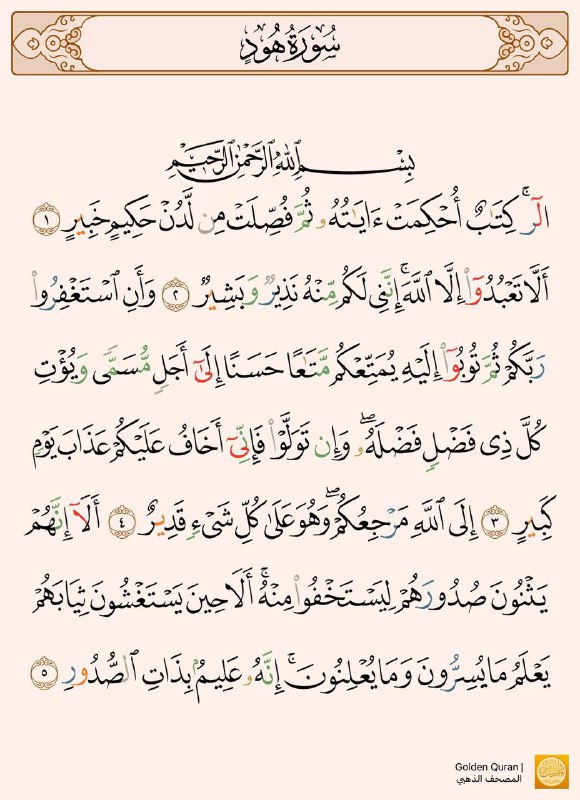 سُورَةُ هُودٍ
بِسْمِ ٱللَّهِ ٱلرَّحْمَٰنِ ٱلرَّحِيمِ
الٓرۚ كِتَٰبٌ أُحْكِمَتْ ءَايَٰتُهُۥ ثُمَّ فُصِّلَتْ مِن لَّدُنْ حَكِيمٍ خَبِيرٍ ١
أَلَّا تَعْبُدُوٓا۟ إِلَّا ٱللَّهَۚ إِنَّنِى لَكُم مِّنْهُ نَذِيرٌ وَبَشِيرٌ ٢ وَأَنِ ٱسْتَغْفِرُوا۟
رَبَّكُمْ ثُمَّ تُوبُوٓا۟ إِلَيْهِ يُمَتِّعْكُم مَّتَٰعًا حَسَنًا إِلَىٰٓ أَجَلٍ مُّسَمًّى وَيُؤْتِ
كُلَّ ذِى فَضْلٍ فَضْلَهُۥۖ وَإِن تَوَلَّوْا۟ فَإِنِّىٓ أَخَافُ عَلَيْكُمْ عَذَابَ يَوْمٍ
كَبِيرٍ ٣ إِلَى ٱللَّهِ مَرْجِعُكُمْۖ وَهُوَ عَلَىٰ كُلِّ شَىْءٍ قَدِيرٌ ٤ أَلَآ إِنَّهُمْ
يَثْنُونَ صُدُورَهُمْ لِيَسْتَخْفُوا۟ مِنْهُۚ أَلَا حِينَ يَسْتَغْشُونَ ثِيَابَهُمْ
يَعْلَمُ مَا يُسِرُّونَ وَمَا يُعْلِنُونَۚ إِنَّهُۥ عَلِيمٌۢ بِذَاتِ ٱلصُّدُورِ ٥
Golden Quran |
المصحف الذهبي